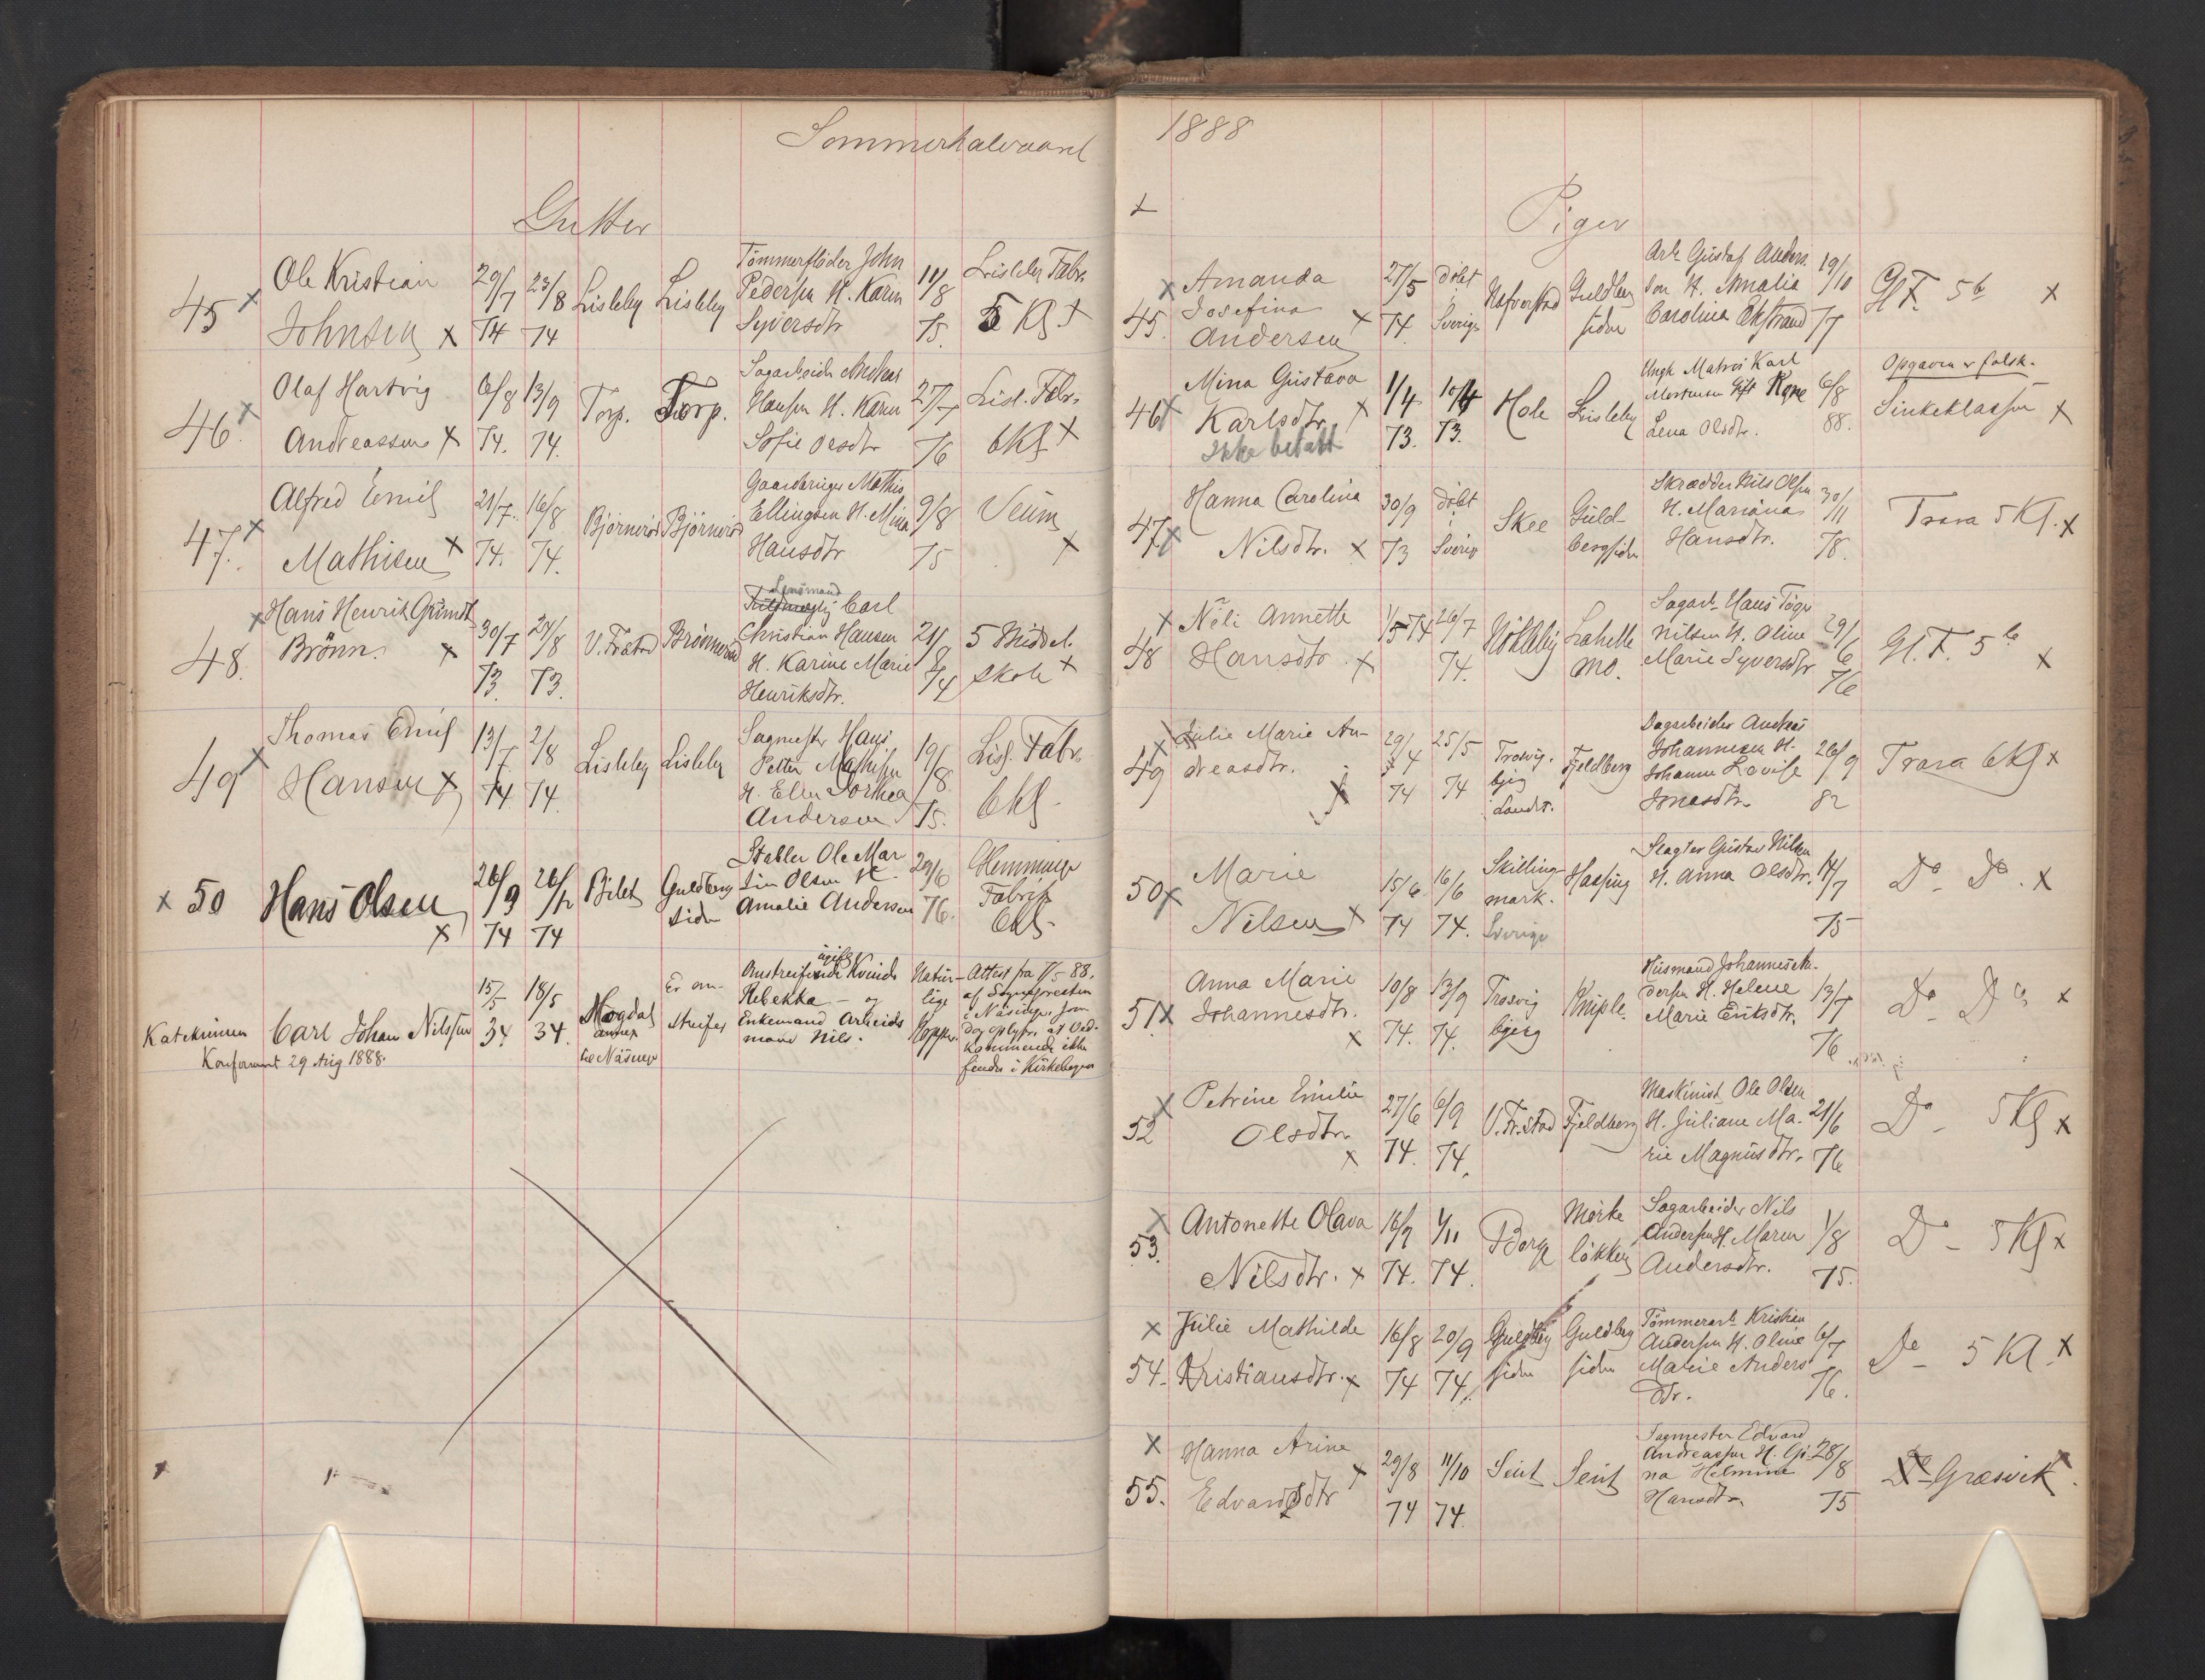 Sommerhalvaaret
Gutter
45 x Ole Kristian Johnsen x 29/7 74 23/8 74 Lisleby Lisleby Tømmerfløder John Pedersen H. Karen Syversdtr 11/8 75. Lisleby Fabr. 5 Kl x
46. x Olaf Hartvig Andreassen x 6/8 74. 13/9 74. Torp. Torp. Sagarbeider Andreas Hansen H. Karen Sofie Olsdtr 27/7 76 Lisl. Fabr. 6Kl x
47. x Alfred Emil Mathisen x 21/7. 74. 16/8 74. Björneröd Björneröd Gaardbruger Mathis Ellingsen H. Mina Hansdtr 9/8 75 Veum x
48. x Hans Henrik Grimdt Brönn. x 30/7 73. 24/8 73. V. Frstad Brönneröd Lensmand Carl Christian Hansen H. Karine Marie Henriksdtr. 21/8 74 5 Middel. skole x
49 x Thomas Emil Hansen x 13/7 74 2/8 74. Lisleby Lisleby Sagmester Hans Petter Mathisen H. Ellen Dorthea Andersen 19/8 75. Lisl. Fabr. 6Kl.
x 50 Hans Olsen x 26/9 74 26/12 74 Bilet Guldberg siden Stabler Ole Martin Olsen H. Amalie Andersen 29/6 76. Glemminge Fabrik 6Kl.
Katekumen Carl Johan Nilssen 15/5 34. 18/5 34. Mogdal annex til Näsinge Er omstreifer Omstreifende ugift Kvinde Rebekka – og Enkemand Arbeidsmand Nils. Naturlige Kopper. Attest fra 7/5 88. af Sognepresten i Näsinge, som dog oplyser at Vedkommende ikke findes i Kirkebogen
Konfirmert 29 Aug 1888.
1888
Piger
45. x Amanda Josefina Andersen x 27/5 74. Döbt i Sverige Nafverstad Guldbergsiden Arb. Gustaf Anderson H. Amalia Carolina Ekstrand 19/10 77 Gl. F. 5b x
46 x Mina Gustava Karlsdtr. x 1/4 73. 10/4 73. Hole Lisleby Ungk. Matros Karl Mortensen Gift Kone Lena Olsdtr. 6/8 88. Opgaven er falsk. Sinkeklassen x
Ikke betalt
47. x Hanna Carolina Nilsdtr. x 30/9 73 döbt i Sverig Skee Guldbergsiden Skrædder Nils Olsen H. Mariana Hansdtr. 30/11 78. Trara 5 Kl. x
48 x Neli Annette Hansdtr. x 1/5 74 26/7 74. Nökleby Lahellemo. Sagarb. Hans Töger Nilsen H. Oline Marie Syversdtr 29/6 76 Gl. F. 5b x
49 x Julie Marie Andreasdtr. x 29/4 74 25/5 74 Trosvigbjerg Landet. Fjeldberg Dagarbeider Andreas Johannesen H. Johanne Lovise Jonasdtr. 26/9 82 Trara 6Kl x
50 x Marie Nilsen x 15/6 74 16/6 74. Skillingmark. Sverige Hasping Slagter Gustav Nilsen H. Anna Olsdtr. 14/7 75 Do – Do. x
51. x Anna Marie Johannesdtr. x 10/8 74. 13/9 74. Trosvigbjerg Kniple. Husmand Johannes Andersen H. Helene Marie Eriksdtr. 13/7 76 Do – Do x
52 x Petrine Emilie Olsdtr. x 27/6 74. 6/9 74. V. Fr.stad Fjeldberg Maskinist Ole Olsen H. Juliane Marie Magnusdtr. 21/6 76 Do – 5Kl x
53. x Antonette Olava Nilsdtr. x 16/9 74. 1/11 74. Borge Mørkeløkken Sagarbeider Nils Andersen H. Maren Andersdtr. 1/8 75. Do – 5Kl x
54. x Julie Mathilde Kristiansdtr. x 16/8 74 20/9 74. Guldbergsiden Guldbergsiden Tömmerarb. Kristian Andersen H. Oline Marie Andersdtr. 6/7 76. Do – 5 Kl. x
55. x Hanna Arine Edvardsdtr x 29/8 74 11/10 74. Seut Seut Sagmester Edvard Andreassen H. Gina Helmine Hansdtr. 28/8 75 Do – Græsvik x